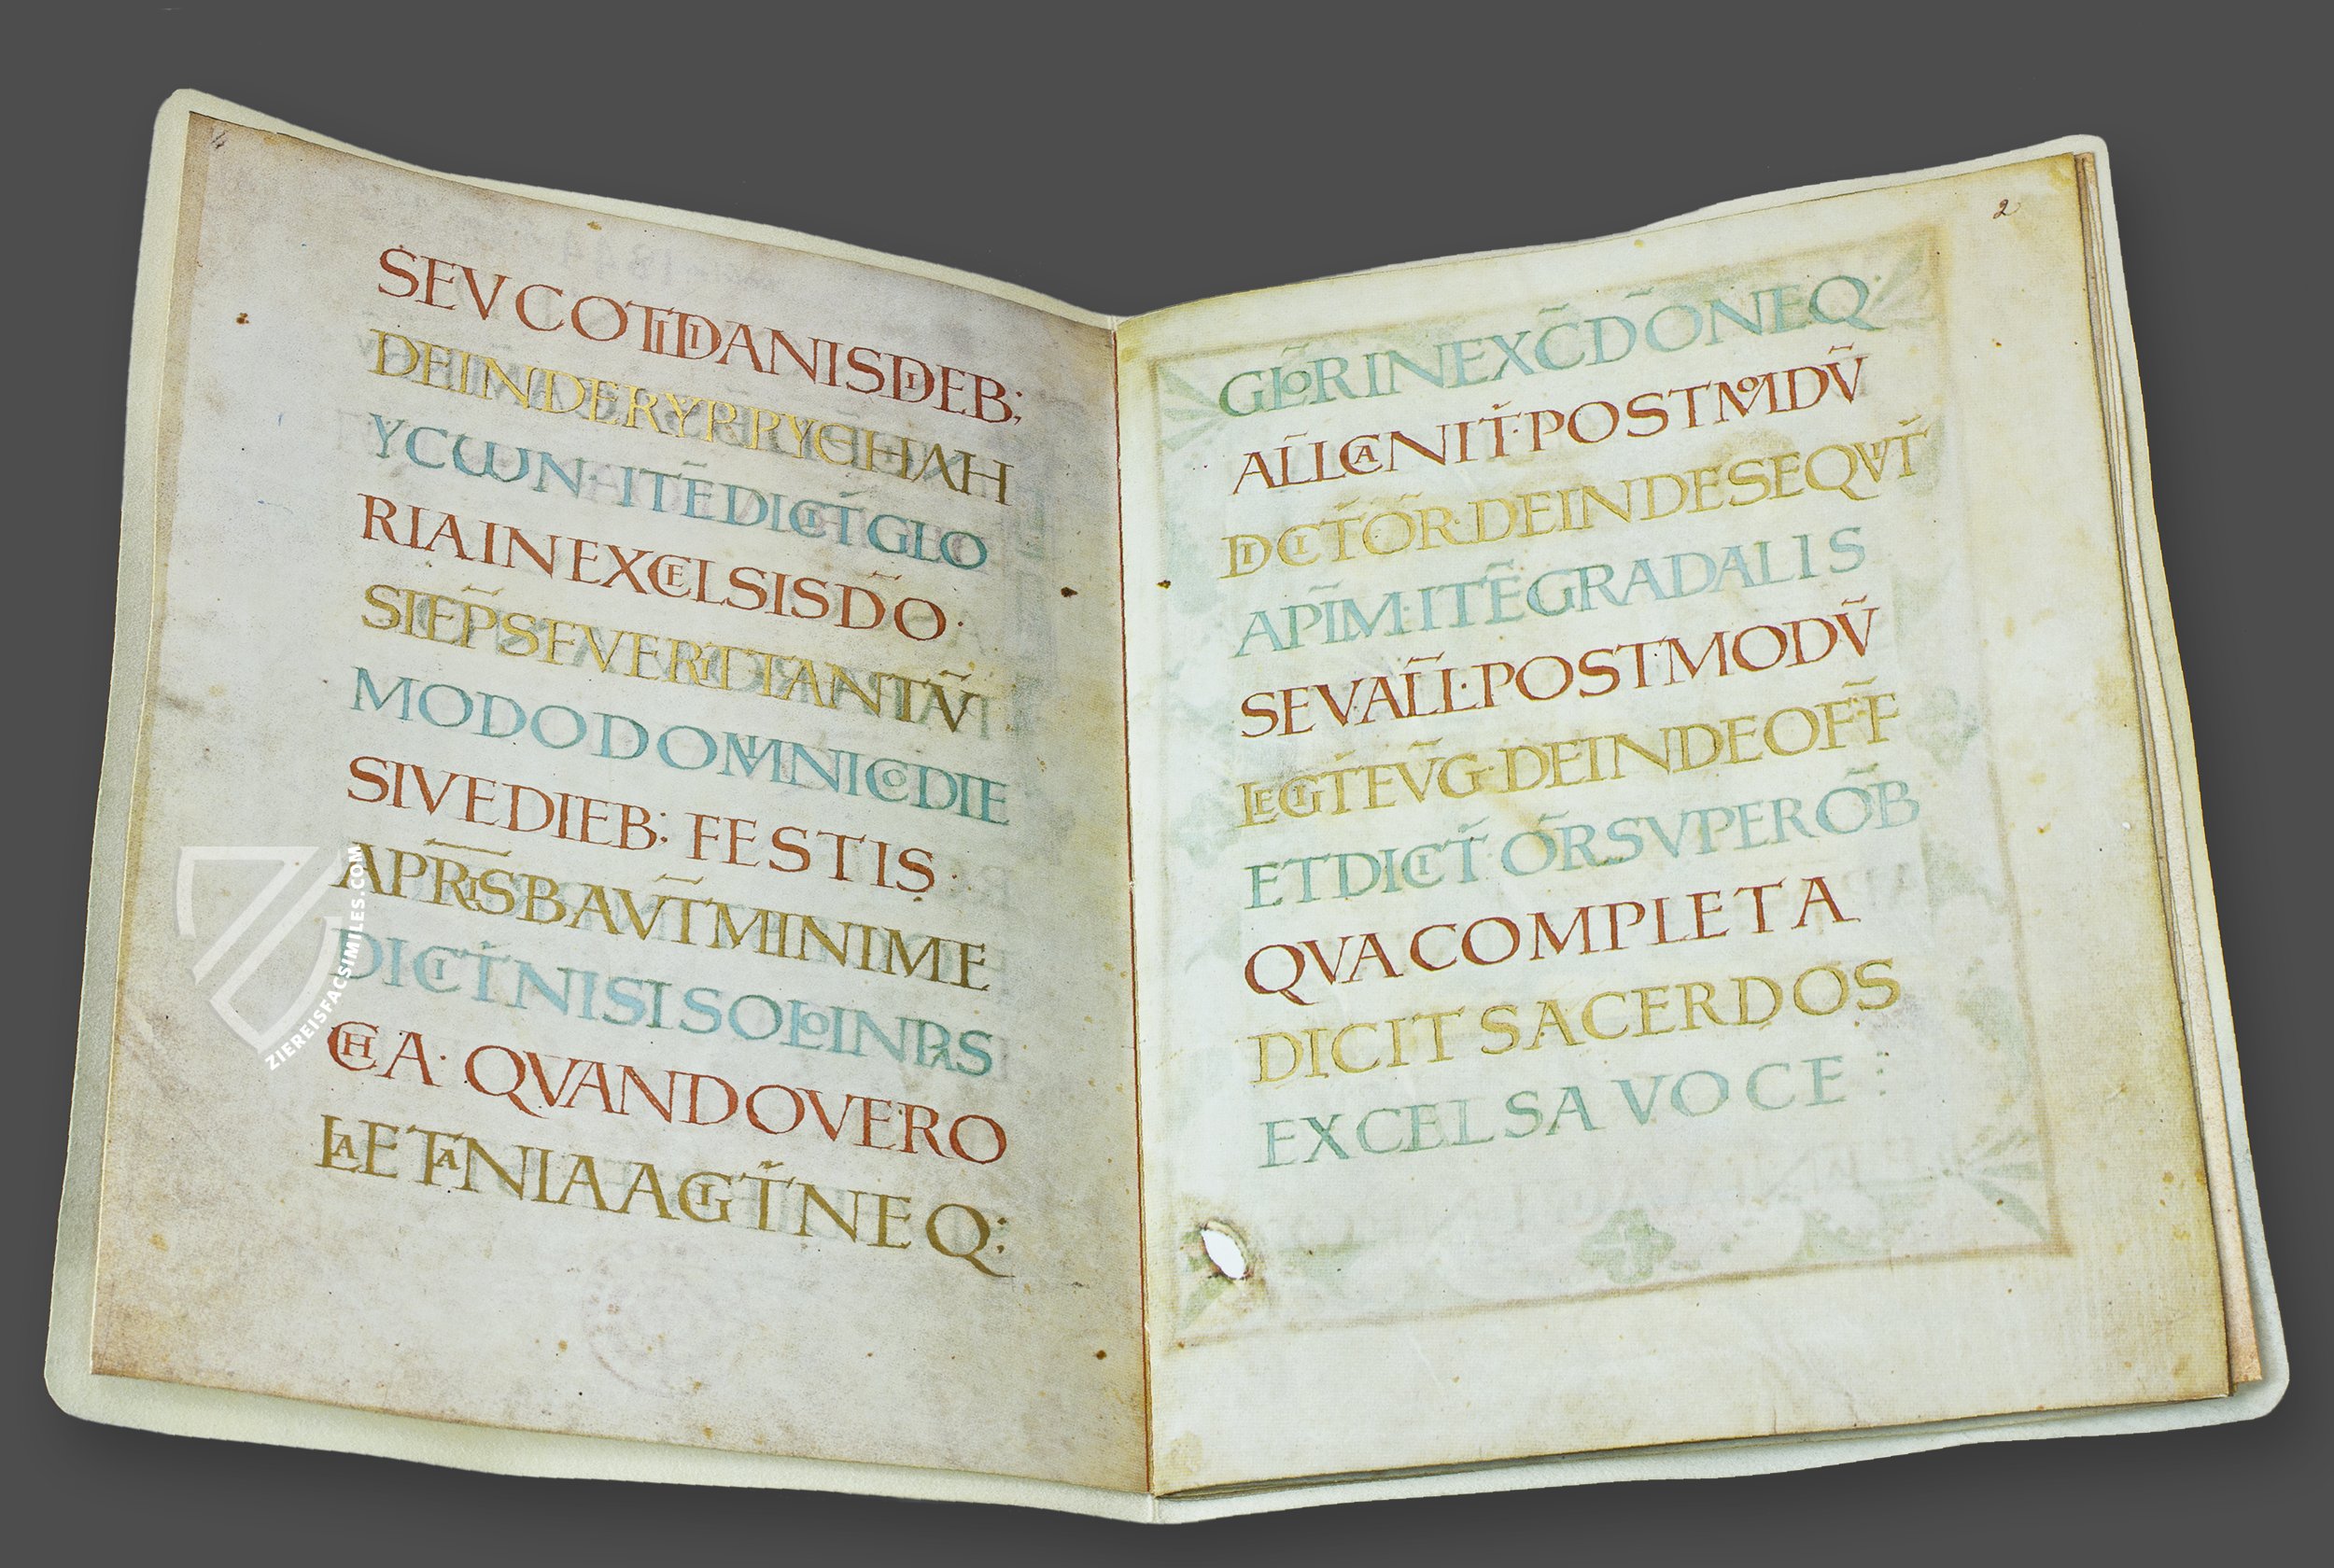 4
SEV COTIDIANIS DIEB:
DEINDE RYRRYCHAH
YCωN · ITĒ DICIT̄ GLO
RIA IN EXCELSIS DŌ ·
SI EP̄S FVERIT TANTV̄
MODO DOMINICO DIE
SIVE DIEB: FESTIS ·
A PR̄ISB AVT̄ MINIME
DICIT̄ NISI SOLO IN PAS
CHA · QVANDO VERO
LAETANIA AGIT̄ NEQ:
2
GLŌR IN EXC̄ DŌ NEQ:
AL̄L CANIT̄ · POSTMODV̄
DICIT̄ ŌR · DEINDE SEQVIT̄
APĪM · ITĒ GRADALIS
SEV AL̄L · POSTMODV̄
LEGIT̄ EV̄G · DEINDE OFF̄
ET DICIT̄ ŌR SVPER ŌB
QVA COMPLETA
DICIT SACERDOS
EXCELSA VOCE :
ZIEREISFACSIMILES.COM